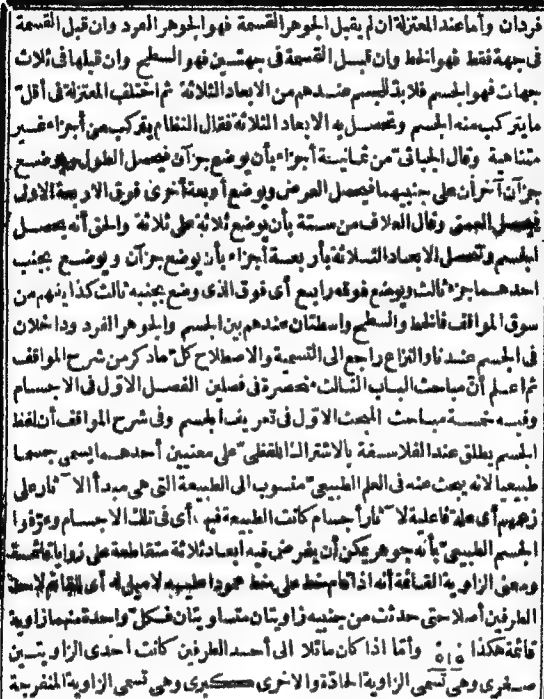 فردان وأما عند المعتزلة ان لم يقبل الجوهر القسمة فهو الجوهر الفرد وان قبل القسمة
فى جهة فقط فهو الخط وان قبل القسمة فى جهتين فهو السطح وان قبلها فى ثلاث
جهات فهو الجسم فلا بد للجسم عندهم من الابعاد الثلاثة ثم اختلف المعتزلة فى أقل
ما يتركب منه الجسم وتحصل به الابعاد الثلاثة فقال النظام يتركب من أجزاء غير
متناهية وقال الجبائى من ثمانية أجزاء بأن يوضع جزآن فيحصل الطول ويوضع
جزآن آخران على جنبيهما فيحصل العرض ويوضع أربعة أخرى فوق الاربعة الاول
فيحصل العمق وقال العلاف من ستة بأن يوضع ثلاثة على ثلاثة والحق أنه يحصل
الجسم وتحصل الابعاد الثلاثة بأربعة أجزاء بأن يوضع جزآن ويوضع بجنب
احدهما جزء ثالث ويوضع فوقه رابع أى فوق الذى وضع بجنبه ثالث كذا يفهم من
سوق المواقف فالخط والسطح واسطتان عندهم بين الجسم والجوهر الفرد وداخلان
فى الجسم عندنا والنزاع راجع الى التسمية والاصطلاح كل ما ذكر من شرح المواقف
ثم اعلم أن مباحث الباب الثالث منحصرة فى فصلين الفصل الاول فى الاجسام
وفيه خمسة مباحث المبحث الاول فى تعريف الجسم وفى شرح المواقف أن لفظ
الجسم يطلق عند الفلاسفة بالاشتراك اللفظى على معنيين أحدهما يسمى جسما
طبيعيا لانه يبحث عنه فى العلم الطبيعى منسوب الى الطبيعة التى هى مبدأ الآثار على
زعمهم أى علة فاعلية لآثار أجسام كانت الطبيعة فيها أى فى تلك الاجسام وعرفوا
الجسم الطبيعى بأنه جوهر يمكن أن يفرض فيه ابعاد ثلاثة متقاطعة على زوايا قائمة
ومعنى الزاوية القائمة أنه اذا قام خط على خط عمودا عليه لا ميل له أى للقائم لاحد
الطرفين أصلا حتى حدثت من جنبيه زاويتان متساويتان فكل واحدة منهما زاوية
قائمة هكذا وأما اذا كان مائلا الى أحد الطرفين كانت احدى الزاويتين
صغرى وهى تسمى الزاوية الحادة والاخرى كبرى وهى تسمى الزاوية المنفرجة